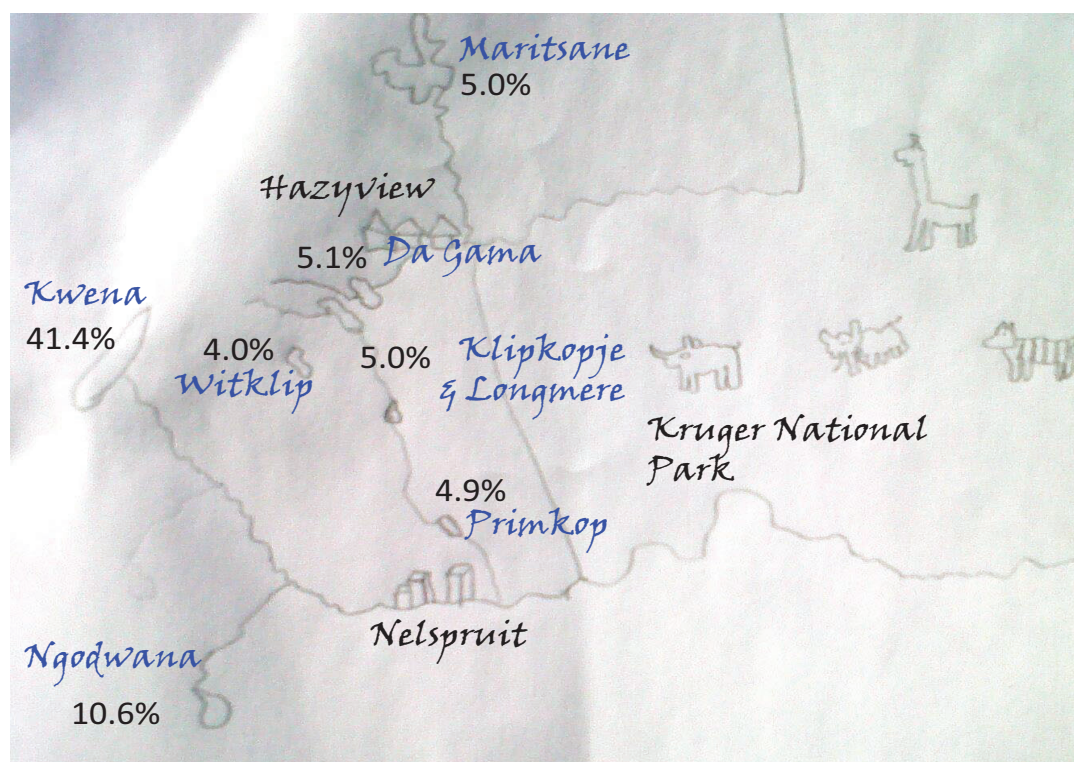 Maritsane
5.0%
Hazyview
5.1%
Da Gama
Kwena
41.4%
4.0%
Witklip
5.0%
Klipkopje
& Longmere
Kruger National
Park
4.9%
Primkop
Nelspruit
Ngodwana
10.6%